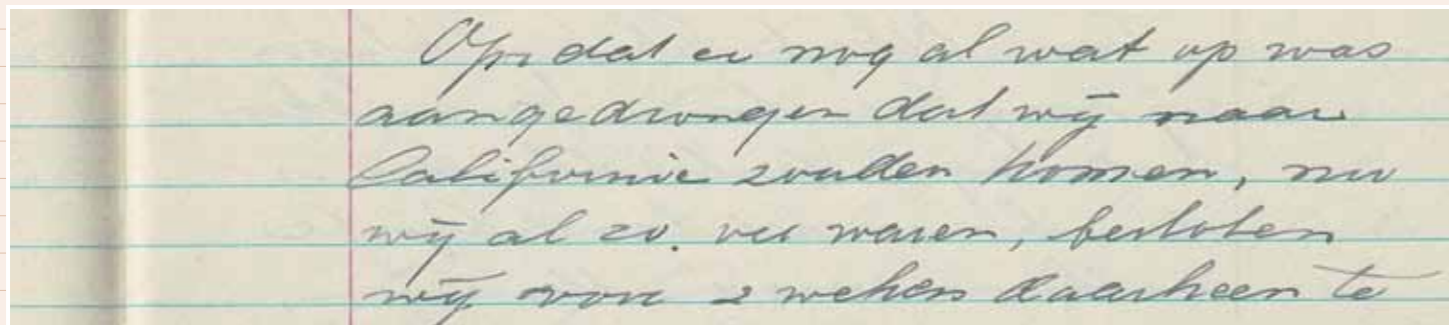 Op dat er nog al wat op was
aangedrongen dat wij naar
Californie zouden komen, nu
wij al zo. ver waren, besloten
wij voor 2 weken daarheen te